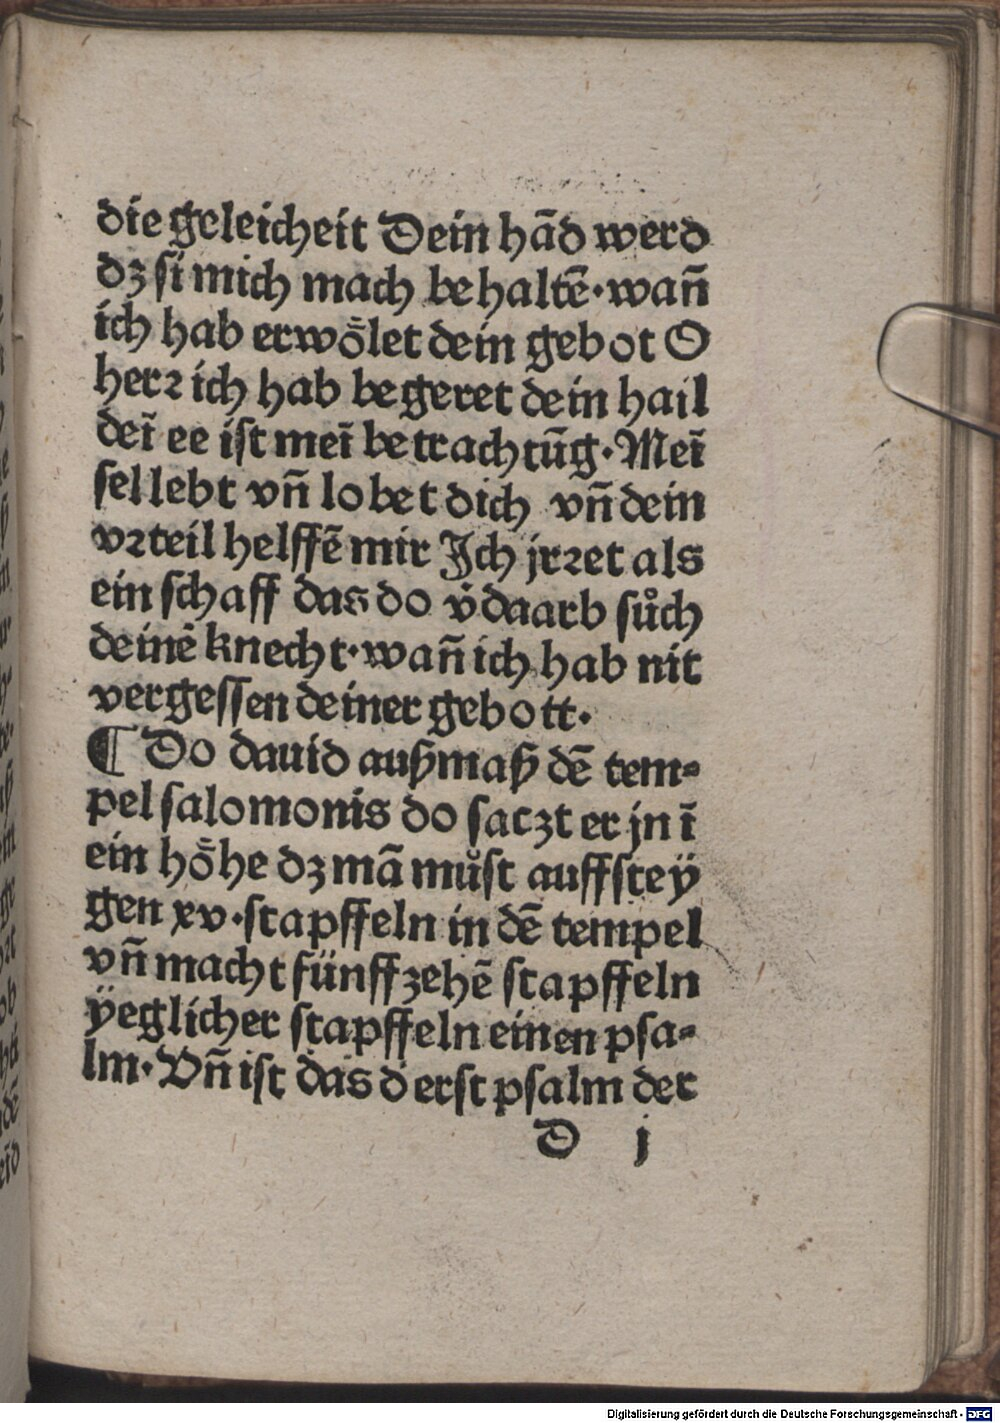 die geleicheit Dein hãd werd
dꝫ sĩ mich mach behaltẽ·wañ
ich hab erwoͤlet dein gebot O
herꝛ ich hab begeret dein hail
deĩ ee ist meĩ betrachtũg·Meĩ
sel lebt vñ lobet dich vñ dein
vꝛteil helffẽ mir Jch jrꝛet als
ein schaff das do v̓daarb sůch
deinẽ knecht·wañ ich hab nit
vergessen deiner gebott·
¶ Do dauid außmaß dẽ tem⸗
pel salomonis do saczt er jn ĩ
ein hoͤhe dꝫ mã můst auffstey
gen xv·stapffeln in dẽ tempel
vñ macht fünffzehẽ stapffeln
ÿeglicher stapffeln einen psa⸗
lm·Vñ ist das d̓ erst psalm der
D j
Digitalisierung gefördert durch die Deutsche Forschungsgemeinschaft - DFG